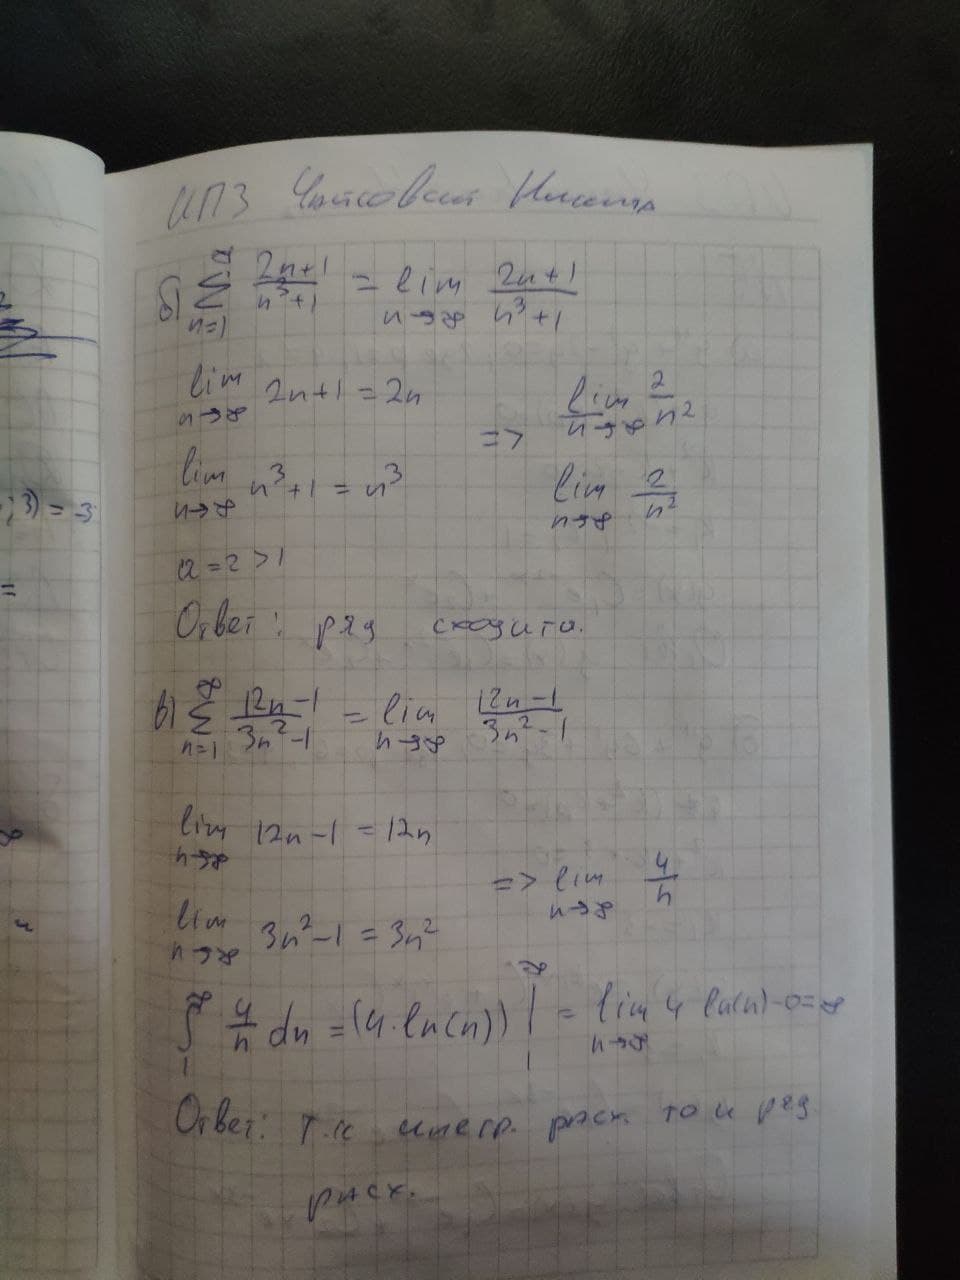 ИПЗ
б) ∑_{n=1}^{∞} (2n+1)/(n³+1) = lim_{n→∞} (2n+1)/(n³+1)
lim_{n→∞} 2n+1 = 2n
=> lim_{n→∞} 2/n²
lim_{n→∞} n³+1 = n³
lim_{n→∞} 2/n²
a = 2 > 1
Ответ: ряд сходится.
в) ∑_{n=1}^{∞} (12n-1)/(3n²-1) = lim_{n→∞} (12n-1)/(3n²-1)
lim_{n→∞} 12n-1 = 12n
=> lim_{n→∞} 4/n
lim_{n→∞} 3n²-1 = 3n²
∫_{1}^{∞} 4/n dn = (4·ln(n)) |_{1}^{∞} = lim_{n→∞} 4 ln(n)-0=∞
Ответ: т.к интегр. расх. то и ряд
расх.
;3) = 3
=